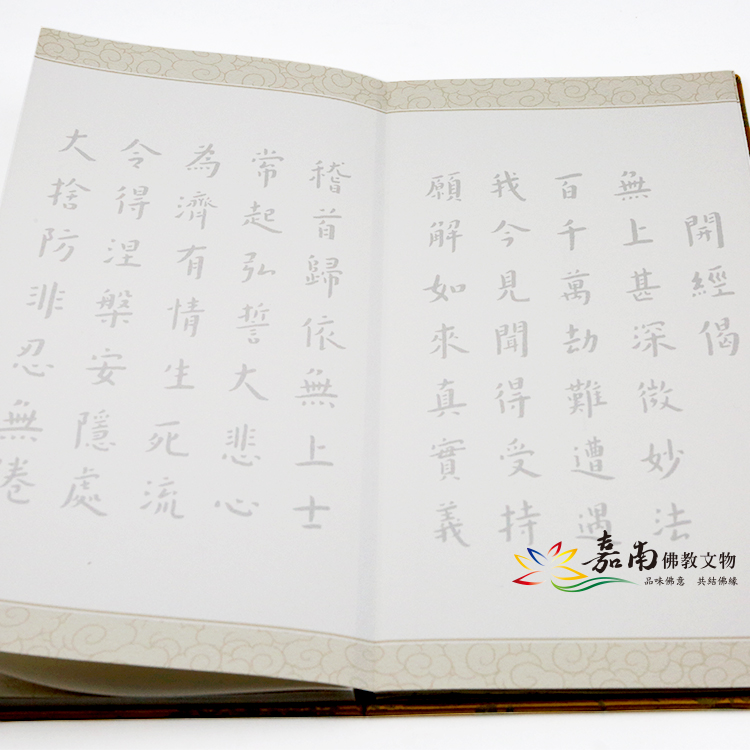 開經偈
無上甚深微妙法
百千萬劫難遭遇
我今見聞得受持
願解如來真實義
稽首歸依無上士
常起弘誓大悲心
為濟有情生死流
令得涅槃安隱處
大捨防非忍無倦
嘉南佛教文物
品味佛意 共結佛緣